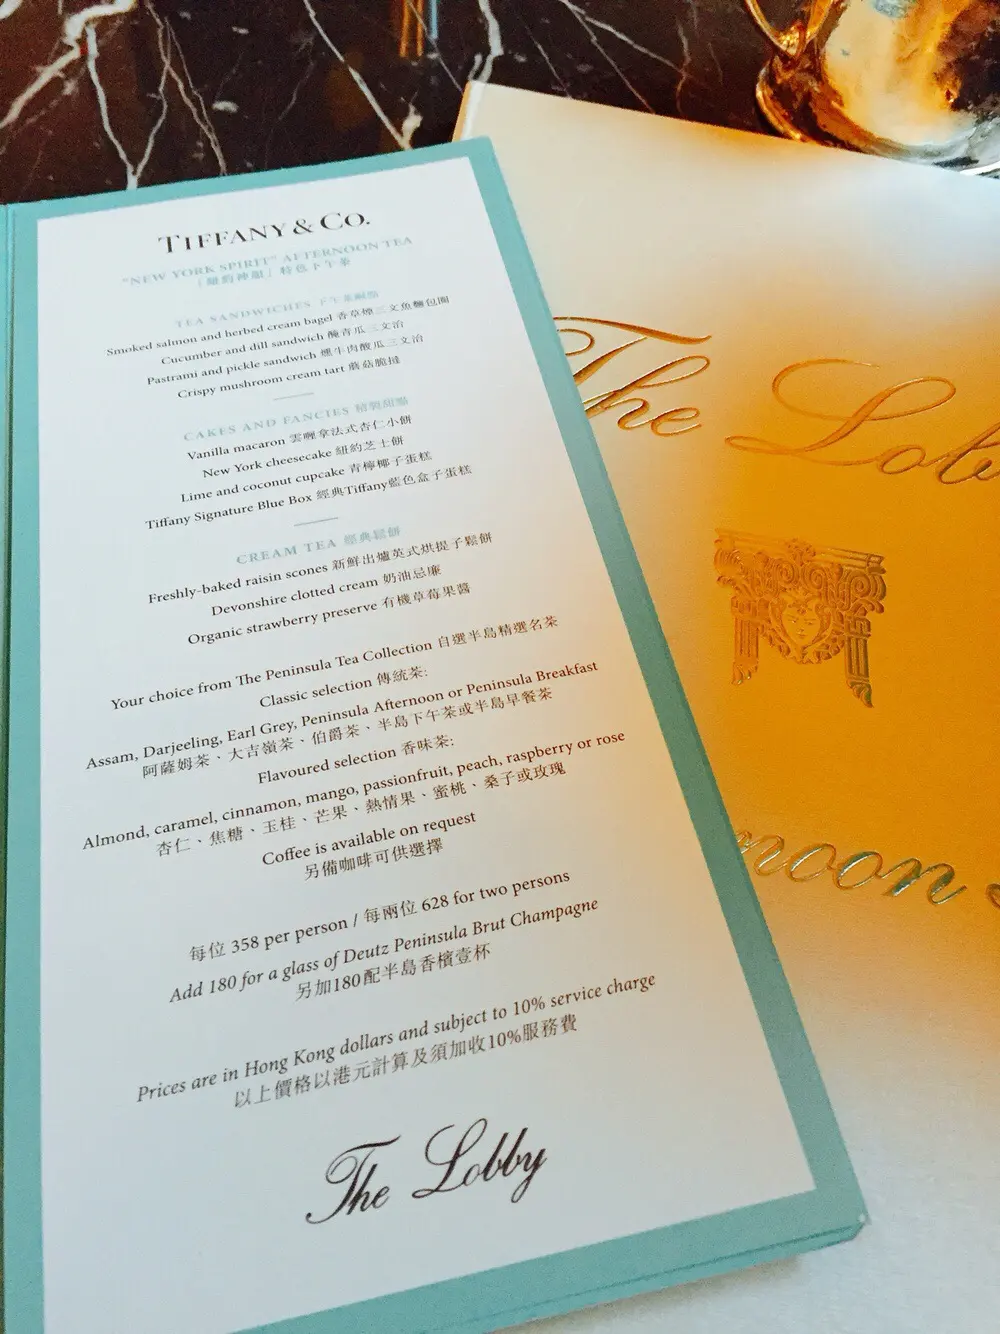 TIFFANY & CO.
"NEW YORK SPIRIT" AFTERNOON TEA
「紐約神韻」特色下午茶
TEA SANDWICHES 下午茶鹹點
Smoked salmon and herbed cream bagel 香草煙三文魚麵包圈
Cucumber and dill sandwich 醃青瓜三文治
Pastrami and pickle sandwich 燻牛肉酸瓜三文治
Crispy mushroom cream tart 蘑菇脆撻
CAKES AND FANCIES 精製甜點
Vanilla macaron 雲喱拿法式杏仁小餅
New York cheesecake 紐約芝士餅
Lime and coconut cupcake 青檸椰子蛋糕
Tiffany Signature Blue Box 經典Tiffany藍色盒子蛋糕
CREAM TEA 經典鬆餅
Freshly-baked raisin scones 新鮮出爐英式烘提子鬆餅
Devonshire clotted cream 奶油忌廉
Organic strawberry preserve 有機草莓果醬
Your choice from The Peninsula Tea Collection 自選半島精選名茶
Classic selection 傳統茶:
Assam, Darjeeling, Earl Grey, Peninsula Afternoon or Peninsula Breakfast
阿薩姆茶、大吉嶺茶、伯爵茶、半島下午茶或半島早餐茶
Flavoured selection 香味茶:
Almond, caramel, cinnamon, mango, passionfruit, peach, raspberry or rose
杏仁、焦糖、玉桂、芒果、熱情果、蜜桃、桑子或玫瑰
Coffee is available on request
另備咖啡可供選擇
每位 358 per person / 每兩位 628 for two persons
Add 180 for a glass of Deutz Peninsula Brut Champagne
另加180配半島香檳壹杯
Prices are in Hong Kong dollars and subject to 10% service charge
以上價格以港元計算及須加收10%服務費
The Lobby
The Lob
noon